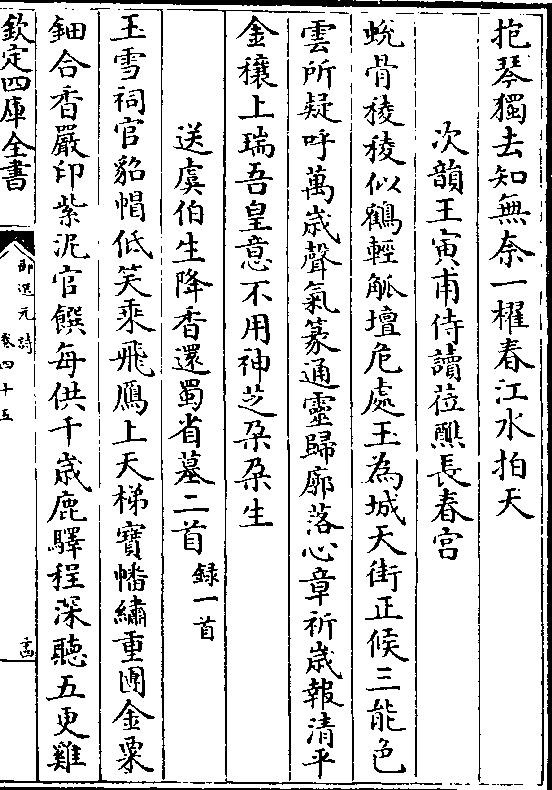 抱琴獨去知無奈一櫂春江水拍天
次韻王寅甫侍讀蒞醮長春宮
蛻骨稜稜似鶴輕觚壇危處玉為城天街正候三能色
雲所疑呼萬歲聲氣篆通靈歸廓落心章祈歲報清平
金穰上瑞吾皇意不用神芝朶朶生
送虞伯生降香還蜀省墓二首錄一首
玉雪祠官貂帽低笑乘飛鴈上天梯寶幡繡重團金粟
鈿合香嚴印紫泥官饌每供千歲鹿驛程深聽五更雞
欽定四庫全書
御選元詩
卷四十五